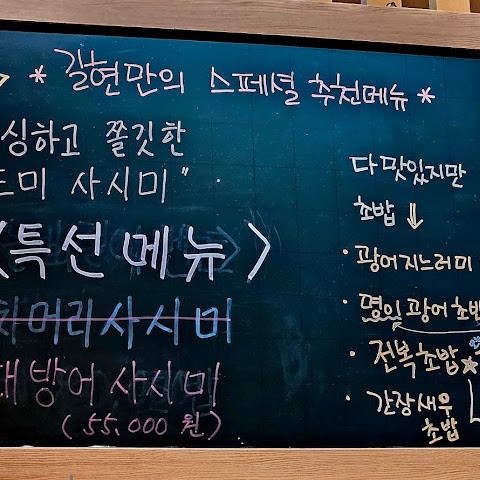 * 길현만의 스페셜 추천메뉴 *
싱하고 쫄깃한
도미 사시미"
<특선메뉴>
머리사시미
대방어 사시미
(55,000원)
다 맛있지만
초밥 ⇓
· 광어지느러미
· 명인 광어 초밥
· 전복초밥☆
· 간장새우
초밥